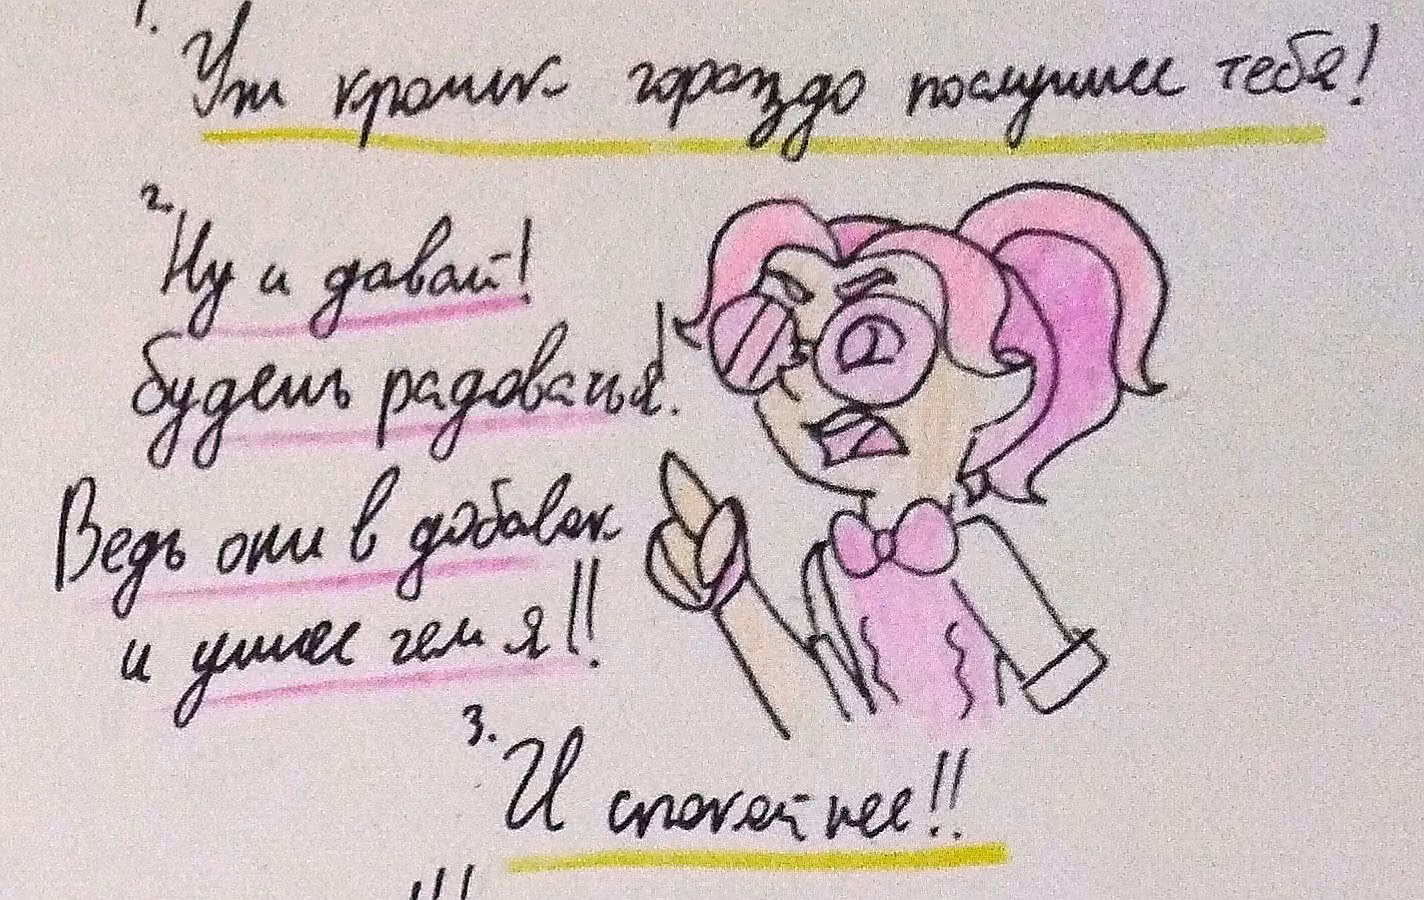 1.
Уж кролик гораздо послушнее тебя!
2.
Ну и давай!
будешь радоваться!
Ведь они в добавок
и умнее чем я!!
3.
И спокойнее!!
!!!